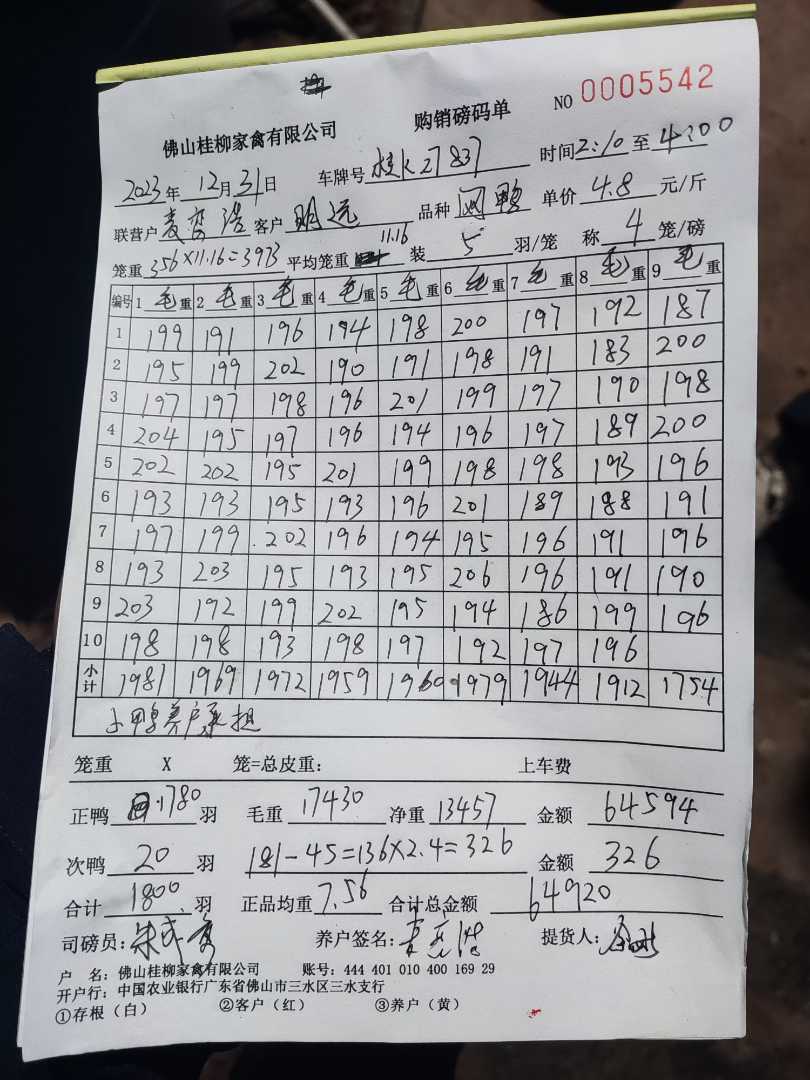 购销磅码单 NO 0005542
佛山桂柳家禽有限公司
2023年12月31日 车牌号 桂K27837 时间 2:10 至 4:00
联营户 客户 明远 品种 鸭 单价 4.8 元/斤
笼重 356×11.16=3973 平均笼重 11.16 装 5 羽/笼 称 4 笼/磅
编号 1 毛重 2 毛重 3 毛重 4 毛重 5 毛重 6 毛重 7 毛重 8 毛重 9 毛重
1 199 191 196 194 198 200 197 192 187
2 195 199 202 190 191 198 191 183 200
3 197 197 198 196 201 199 197 190 198
4 204 195 197 196 194 196 197 189 200
5 202 202 195 201 199 198 198 193 196
6 193 193 195 193 196 201 189 188 191
7 197 199 202 196 194 195 196 191 196
8 193 203 195 193 195 206 196 191 190
9 203 192 199 202 195 194 186 199 196
10 198 198 193 198 197 192 197 196
小计 1981 1969 1972 1959 1960 1979 1944 1912 1754
鸭养户承担
笼重 X 笼=总皮重: 上车费
正鸭 1780 羽 毛重 17430 净重 13457 金额 64594
次鸭 20 羽 181-45=136×2.4=326 金额 326
合计 1800 羽 正品均重 7.56 合计总金额 64920
司磅员: 养户签名: 提货人:
户 名: 佛山桂柳家禽有限公司 账号: 444 401 010 400 169 29
开户行: 中国农业银行广东省佛山市三水区三水支行
①存根（白） ②客户（红） ③养户（黄）